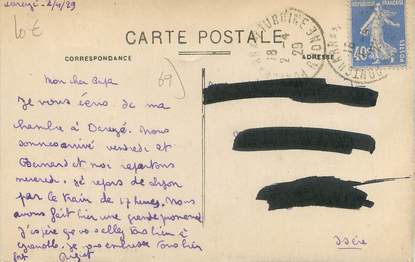 Darezé - 2/4/29
10 €
CARTE POSTALE
CORRESPONDANCE
ADRESSE
69
Mon cher Papa
Je vous écris de ma
chambre à Darezé. Nous
sommes arrivé vendredi et
Bernard et moi repartons
mercredi. Je repars de Lyon
par le train de 17 heures. Nous
avons fait hier une grande promenade
J'espère que vous allez tous bien à
Grenoble. Je vous embrasse tous bien
fort
Isère
18 - 14
2 - 4
29
RHONE
40